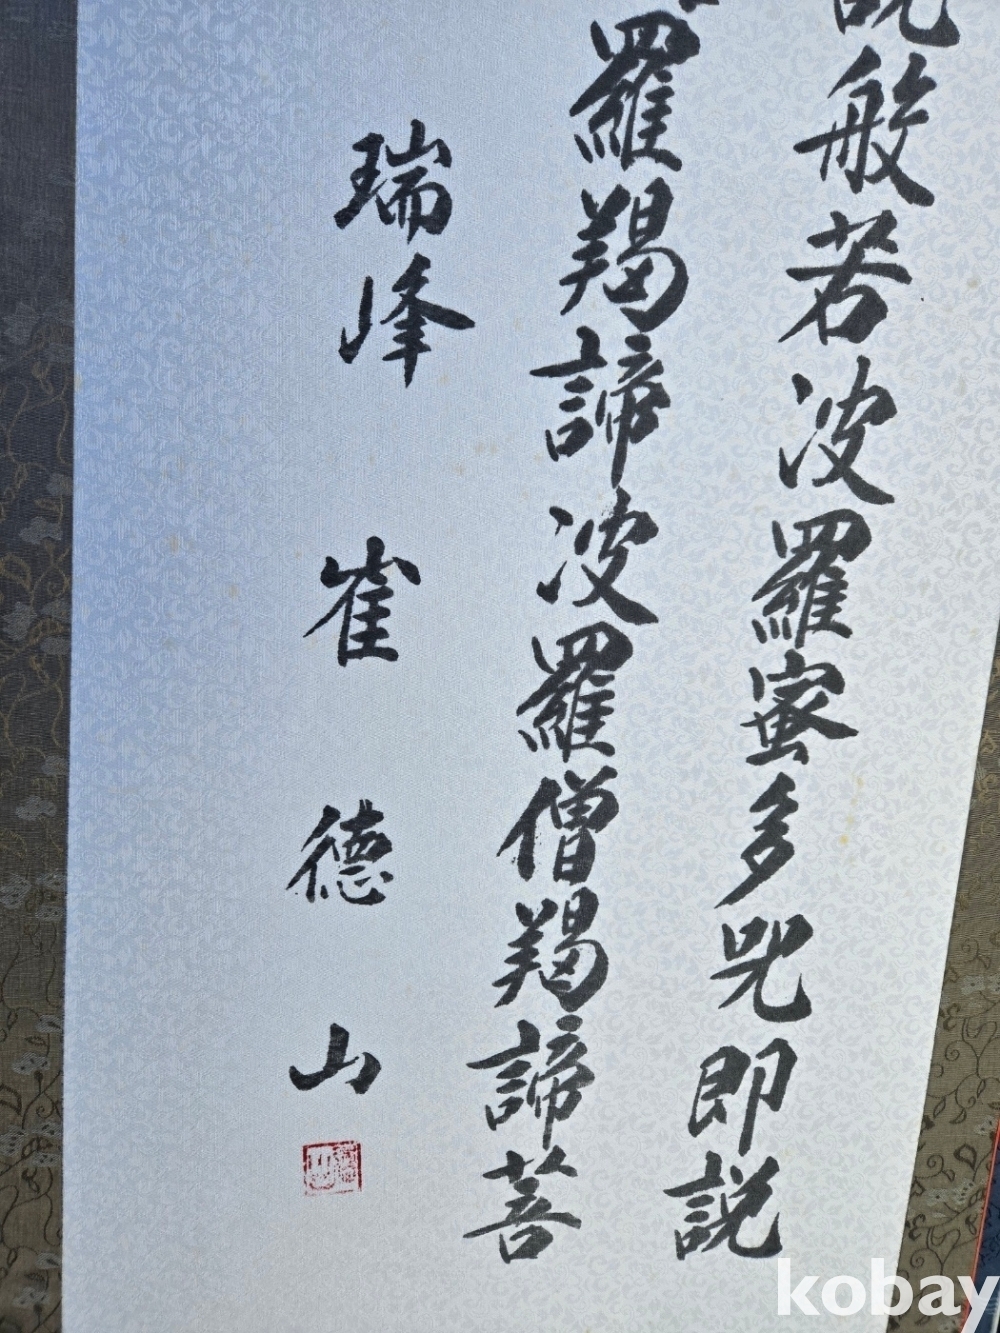 說般若波羅蜜多呪即説
羅羯諦波羅僧羯諦菩
瑞峰 崔德山
kobay